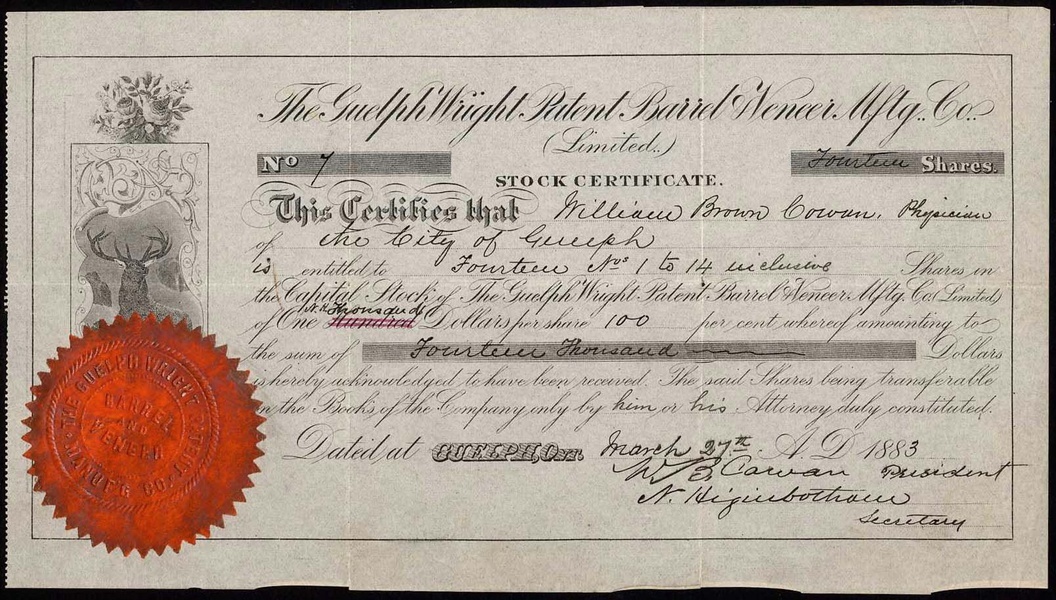 The Guelph Wright Patent Barrel & Veneer Mftg. Co.
(Limited.)
No 7 Fourteen Shares.
STOCK CERTIFICATE.
This Certifies that William Brown Cowan, Physician
of the City of Guelph
is entitled to Fourteen Nos 1 to 14 inclusive Shares in
the Capital Stock of The Guelph Wright Patent Barrel & Veneer Mftg. Co. (Limited)
N.H. Thousand
of One Hundred Dollars per share 100 per cent whereof amounting to
the sum of Fourteen Thousand Dollars
is hereby acknowledged to have been received. The said Shares being transferable
in the Books of the Company only by him or his Attorney duly constituted.
Dated at GUELPH, Ont. March 27th A.D 1883
W B Cowan President
N. Higinbotham
Secretary
THE GUELPH WRIGHT PATENT
BARREL
AND
VENEER
MANUF'G CO'Y